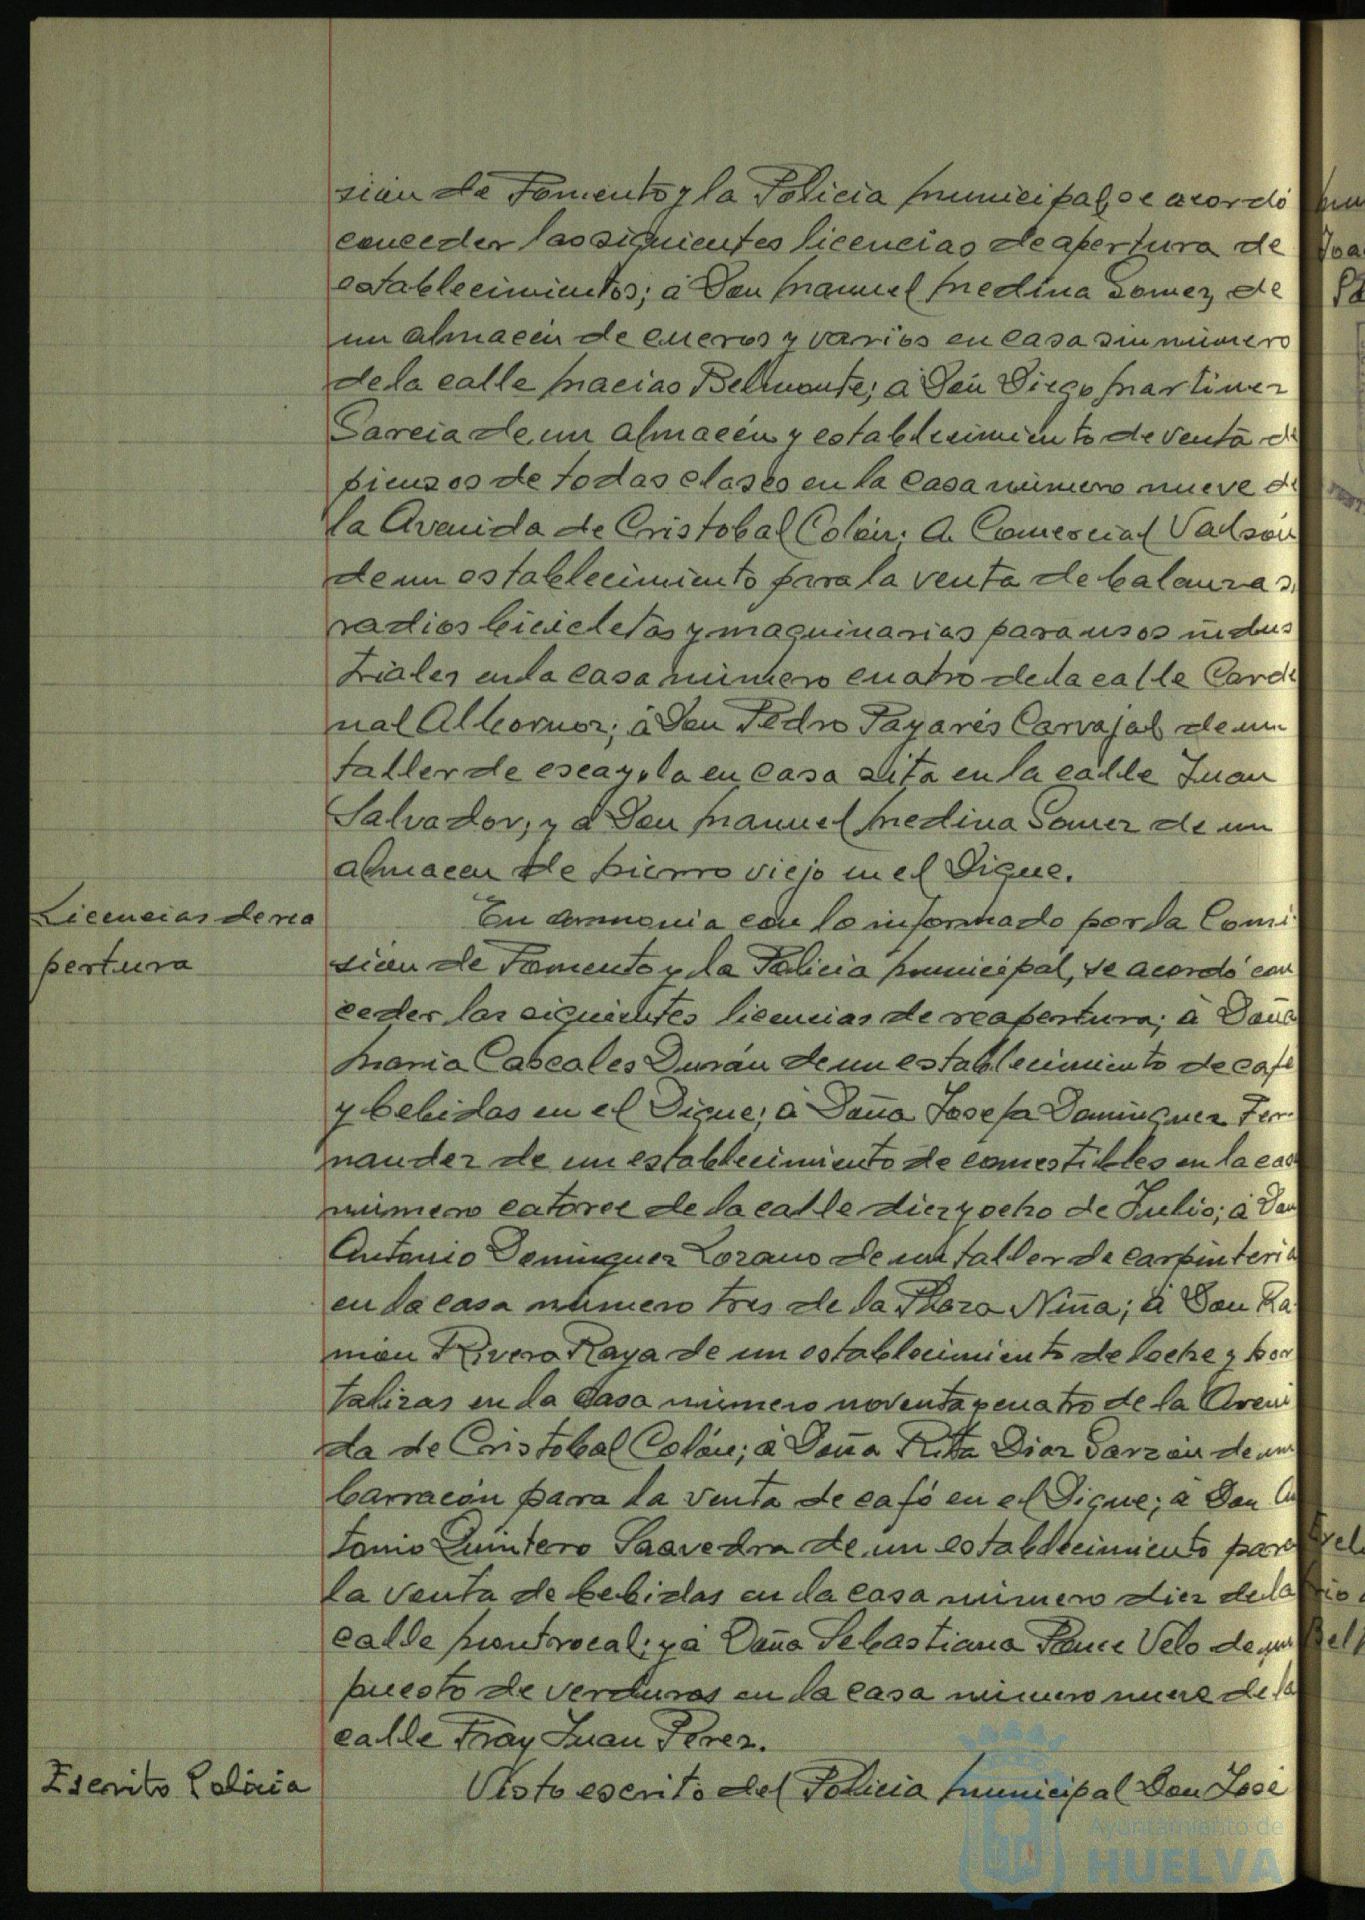 sión de Fomento y la Policia Municipal, se acordó
conceder las siguientes licencias de apertura de
establecimientos; á Don Manuel Medina Gomez, de
un almacén de cueros y varios en casa sin número
de la calle Macias Belmonte; á Don Diego Martinez
Garcia de un almacén y establecimiento de venta de
piensos de todas clases en la casa número nueve de
la Avenida de Cristobal Colón; A Comercial Valsón
de un establecimiento para la venta de balanzas,
radios bicicletas y maquinarias para usos indus
triales en la casa número cuatro de la calle Cardi
nal Albornoz; á Don Pedro Payarés Carvajal, de un
taller de escayola en casa sita en la calle Juan
Salvador, y á Don Manuel Medina Gomez de un
almacen de hierro viejo en el Dique.
Licencias de rea
pertura
En armonia con lo informado por la Comi
sión de Fomento y la Policia Municipal, se acordó con
ceder las siguientes licencias de reapertura; á Doña
Maria Cascales Durán de un establecimiento de café
y bebidas en el Dique; á Doña Josefa Dominguez Fer-
nandez de un establecimiento de comestibles en la casa
número catorce de la calle diez y ocho de Julio; á Don
Antonio Dominguez Lozano de un taller de carpinteria
en la casa número tres de la Plaza Niña; á Don Ra-
món Rivera Raya de un establecimiento de leche y hor
talizas en la casa número noventa y cuatro de la Aveni
da de Cristobal Colón; á Doña Rita Diaz Garzón de un
barracón para la venta de café en el Dique; á Don An
tonio Quintero Saavedra de un establecimiento para
la venta de bebidas en la casa número diez de la
calle Montrocal; y á Doña Sebastiana Ponce Velo de un
puesto de verduras en la casa número nueve de la
calle Fray Juan Perez.
Escrito Policia
Visto escrito del Policia Municipal Don José
Ayuntamiento de
HUELVA